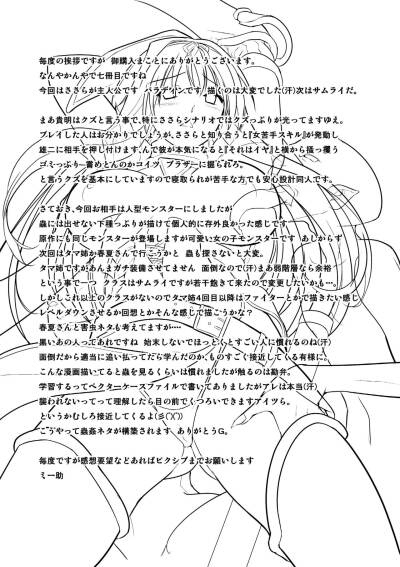 毎度の挨拶ですが 御購入まことにありがとうございます。
なんやかんやで七冊目ですね
今回はささらが主人公です パラディンです 描くのは大変でした(汗)次はサムライだ。
まあ貴明はクズと言う事で、特にささらシナリオではクズっぷりが光ってますゆえ。
プレイした人はお分かりでしょうが、ささらと知り合うと『女苦手スキル』が発動し
雄二に相手を押し付けます、んで彼が本気になると『それはイヤ』と横から掻っ攫う
ゴミっつぷり…嘗めとんのかコイツ ブラザーに掘られろ。
と言うクズを基本にしていますので寝取られが苦手な方でも安心設計同人です。
さておき、今回お相手は人型モンスターにしましたが
蟲には出せない下種っぷりが描けて個人的に存外良かった感じです
原作にも同じモンスターが登場しますが可愛い女の子モンスターです あしからず
次回はタマ姉か春夏さんで行こうかと 蟲も探さないと大変。
タマ姉ですがあんまガチ装備させてません 面倒なので(汗)まあ弱階層なら余裕♪
という事で一つ クラスはサムライですが若干飽きて来たので変更したいかも…。
しかしこれ以上のクラスがないのでタマ姉4回目以降はファイターとかで描きたい感じ
レベルダウンさせるか回想とかそんな感じで描こうかな?
春夏さんと害虫ネタも考えてますが…
黒いあの人ってあれですね 始末しないでほっとくとすごい人に慣れるのね(汗)
面倒だから適当に追い払ってたら学んだのか、ものすごく接近してくる有様に。
こんな漫画描いてると蟲を見るくらいは慣れましたが触るのは勘弁。
学習するってベクターケースファイルで書いてありましたがアレは本当(汗)
襲われないってって理解したら目の前でくつろいできますアイツら。
というかむしろ接近してくるよ(彡◯乂◯)
こうやって蟲姦ネタが構築されます ありがとうG。
毎度ですが感想要望などあればピクシブまでお願いします
ミー助